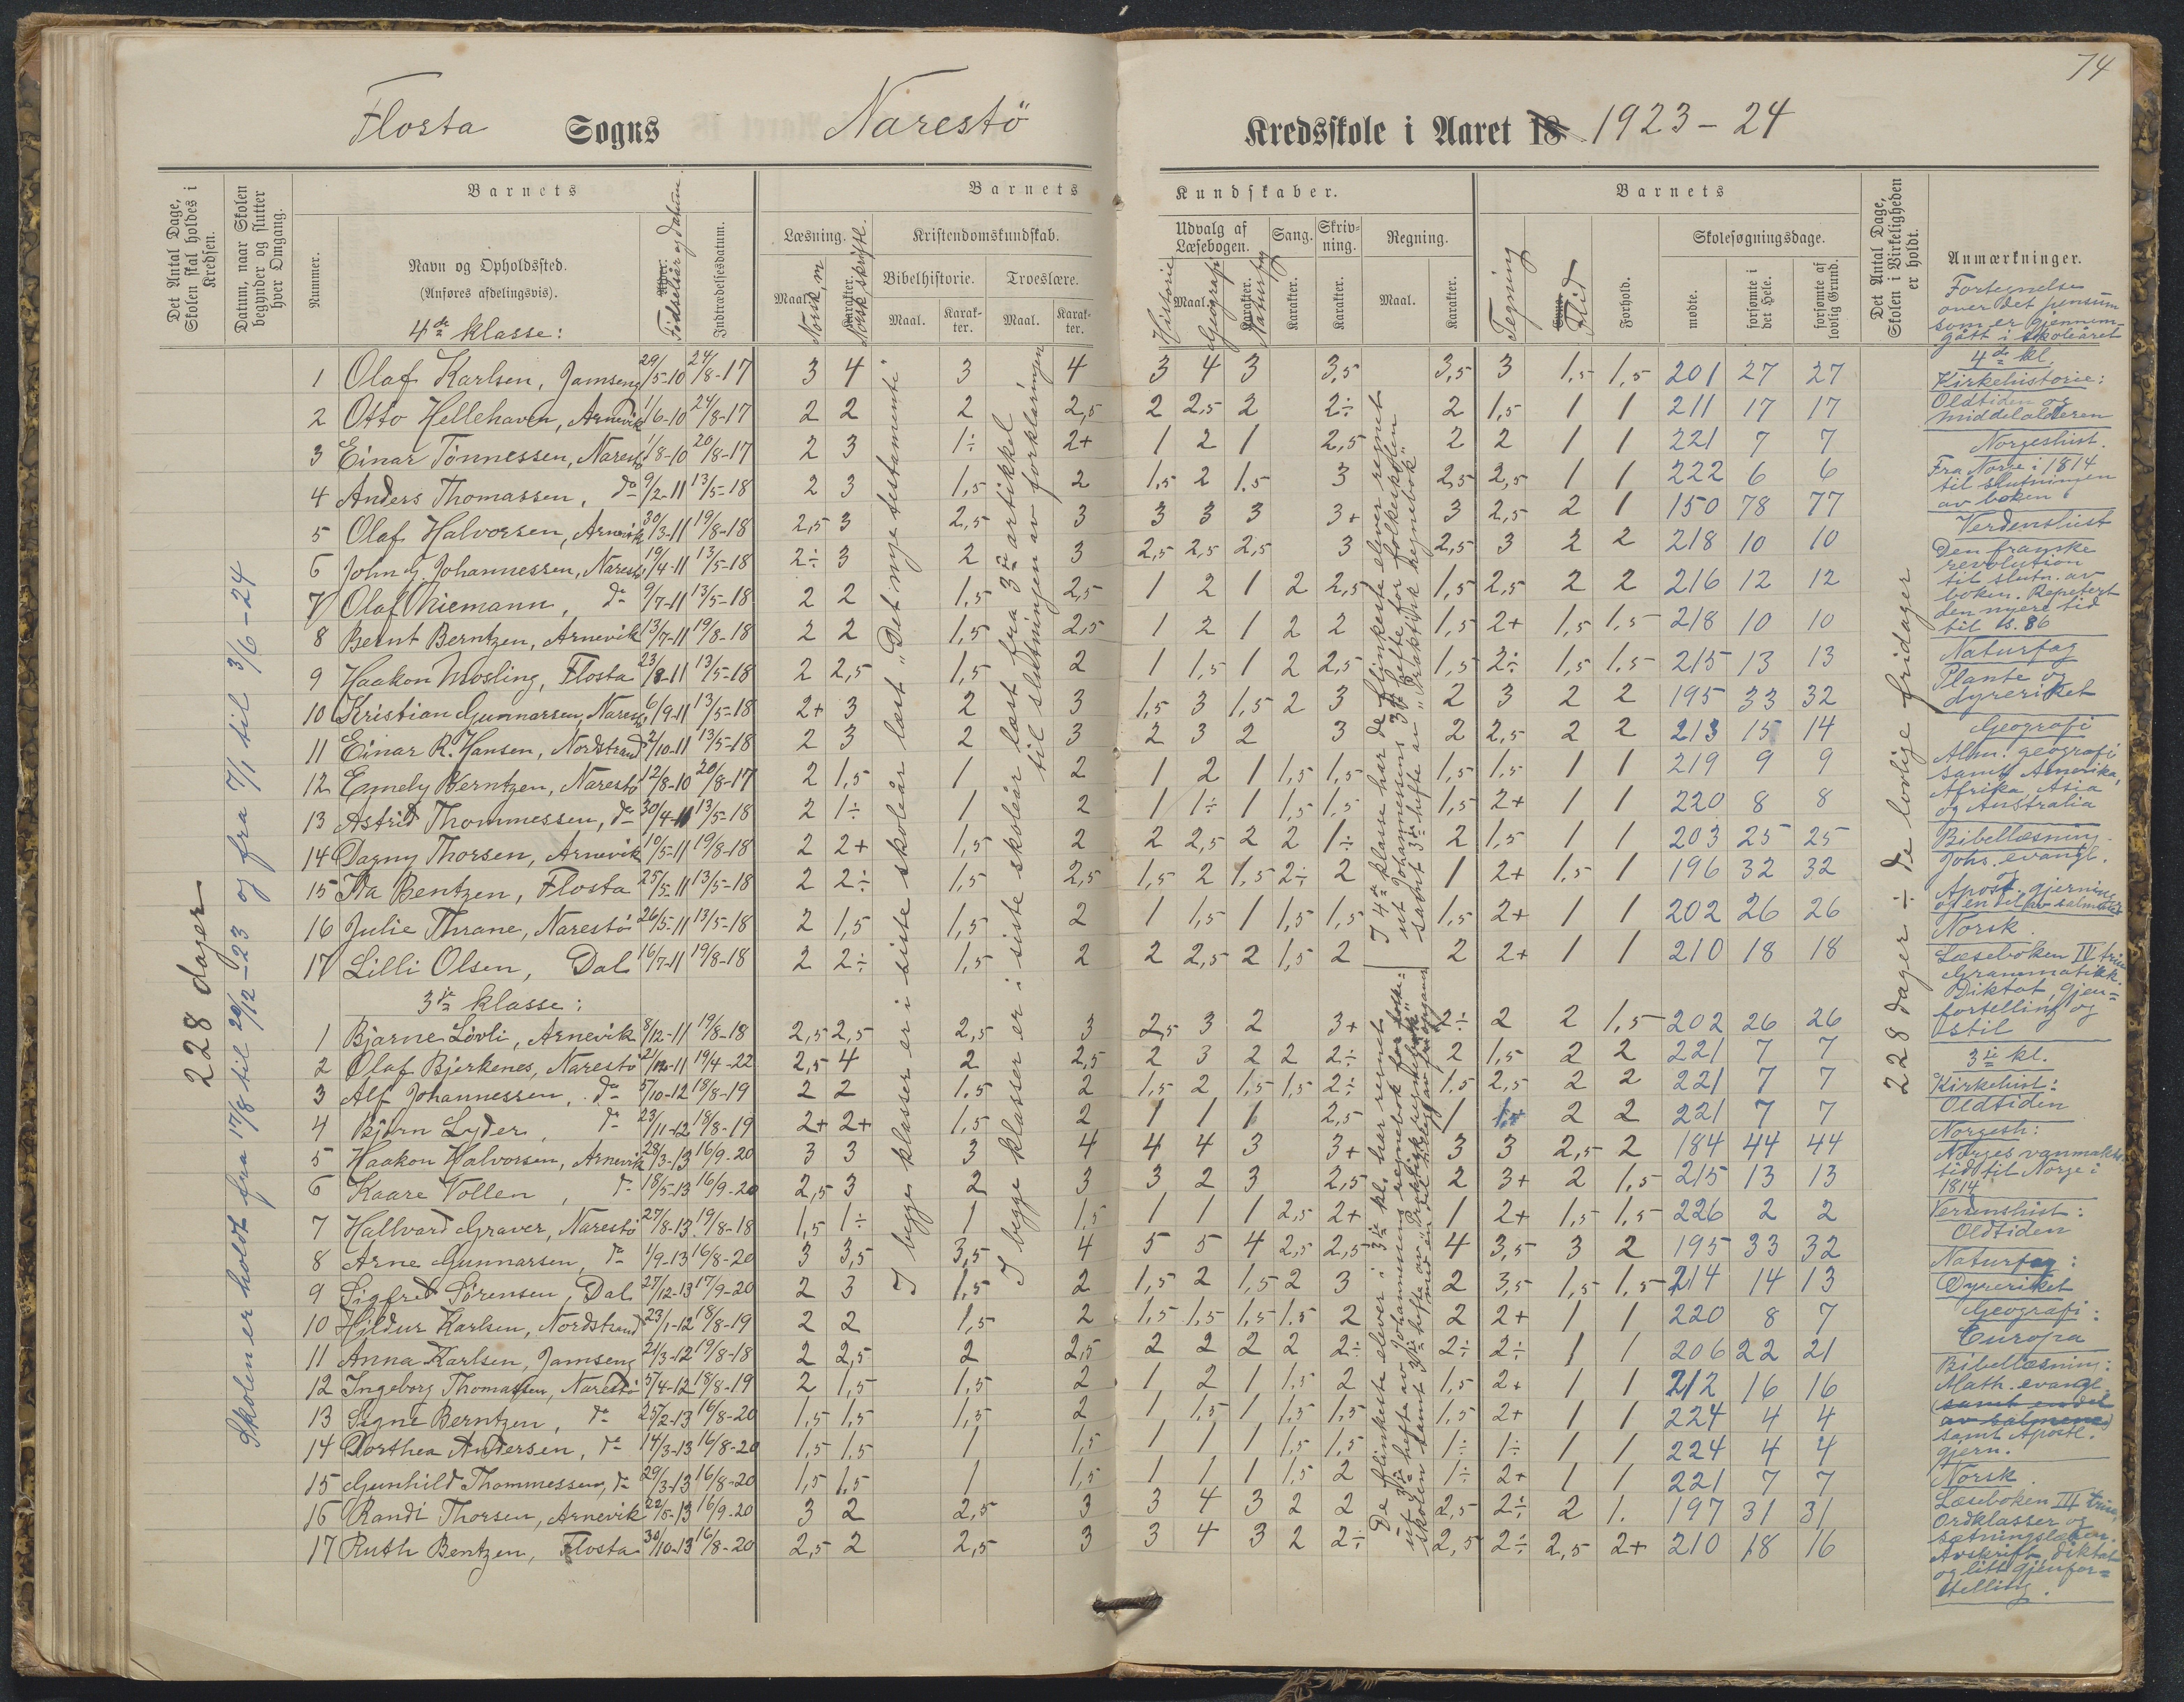 74
Flosta Sogns Narestö Kredsskole i Aaret 18 1923-24
Det Antal Dage, Skolen skal holdes i Kredsen.
Datum, naar Skolen begynder og slutter hver Omgang.
Nummer.
Barnets
Navn og Opholdssted.
(Anføres afdelingsvis).
4de klasse:
Alder.
Fødselsår og datum.
Indtrædelsesdatum.
Barnets Kundskaber.
Læsning. Maal. Karakter.
Norsk, m
Norsk skriftl.
Kristendomskundskab.
Bibelhistorie. Troeslære.
Maal. Karakter. Maal. Karakter.
Udvalg af Læsebogen. Maal. Karakter.
Historie
Geografi
Naturfag
Sang. Karakter.
Skrivning. Karakter.
Regning. Maal. Karakter.
Barnets
Tegning
Evne.
Flid
Forhold.
Skolesøgningsdage.
mødte. forsømte i det Hele. forsømte af lovlig Grund.
Det Antal Dage, Skolen i Virkeligheden er holdt.
Anmærkninger.
228 dager
Skolen er holdt fra 17/8 til 22/12-23 og fra 7/1 til 3/6-24
1 Olaf Karlsen, Jamseng 29/5-10 24/8-17 3 4 3 4 3 4 3 3,5 3,5 3 1,5 1,5 201 27 27
2 Otto Hellehaven, Arnevik 1/6-10 24/8-17 2 2 2 2,5 2 2,5 2 2÷ 2 1,5 1 1 211 17 17
3 Einar Tönnessen, Narestö 1/8-10 20/8-17 2 3 1÷ 2+ 1 2 1 2,5 2 2 1 1 221 7 7
4 Anders Thomassen, do 9/2-11 13/5-18 2 3 1,5 2 1,5 2 1,5 3 2,5 2,5 1 1 222 6 6
5 Olaf Halvorsen, Arnevik 30/3-11 19/8-18 2,5 3 2,5 3 3 3 3 3+ 3 2,5 2 1 150 78 77
6 John G. Johannessen, Narestö 19/4-11 13/5-18 2÷ 3 2 3 2,5 2,5 2,5 3 2,5 3 2 2 218 10 10
7 Olaf Niemann, do 9/7-11 13/5-18 2 2 1,5 2,5 1 2 1 2 2,5 1,5 2,5 2 2 216 12 12
8 Bernt Berntzen, Arnevik 13/7-11 19/8-18 2 2 1,5 2,5 1 2 1 2 2 1,5 2+ 1,5 1,5 218 10 10
9 Haakon Mosling, Flosta 23/8-11 13/5-18 2 2,5 1,5 2 1 1,5 1 2 2,5 1,5 2÷ 1,5 1,5 215 13 13
10 Kristian Gunnarsen, Narestö 6/9-11 13/5-18 2+ 3 2 3 1,5 3 1,5 2 3 2 3 2 2 195 33 32
11 Einar R. Hansen, Nordstrand 2/10-11 13/5-18 2 3 2 3 2 3 2 3 2 2,5 2 2 213 15 14
12 Emmely Berntzen, Narestö 12/8-10 20/8-17 2 1,5 1 2 1 2 1 1,5 1,5 1,5 1,5 1 1 219 9 9
13 Astrid Thommessen, do 30/4-11 13/5-18 2 1÷ 1 2 1 1÷ 1 1,5 1,5 1,5 2+ 1 1 220 8 8
14 Dagny Thorsen, Arnevik 10/5-11 19/8-18 2 2+ 1,5 2 2 2,5 2 2 1÷ 2 1,5 1 1 203 25 25
15 Ida Bentzen, Flosta 25/5-11 13/5-18 2 2÷ 1,5 2,5 1,5 2 1,5 2÷ 2 1 2+ 1,5 1 196 32 32
16 Julie Thrane, Narestö 26/5-11 13/5-18 2 1,5 1,5 2 1 1,5 1 1,5 1,5 1,5 2+ 1 1 202 26 26
17 Lilli Olsen, Dal 16/7-11 19/8-18 2 2÷ 1,5 2 2 2,5 2 1,5 2 2 2+ 1 1 210 18 18
3je klasse:
1 Bjarne Lövli, Arnevik 8/12-11 19/8-18 2,5 2,5 2,5 3 2,5 3 2 3+ 2÷ 2 2 1,5 202 26 26
2 Olaf Bjerkenes, Narestö 19/4-22 2,5 4 2 2,5 2 3 2 2 2÷ 2 1,5 2 2 221 7 7
3 Alf Johannessen, do 5/10-12 18/8-19 2 2 1,5 2 1,5 2 1,5 1,5 2÷ 1,5 2,5 2 2 221 7 7
4 Björn Lyder, do 23/11-12 18/8-19 2+ 2+ 1,5 2 1 1 1 2,5 1 2 2 221 7 7
5 Haakon Halvorsen, Arnevik 28/3-13 16/9-20 3 3 3 4 4 4 3 3+ 3 3 2,5 2 184 44 44
6 Kaare Vollen, do 18/5-13 16/9-20 2,5 3 2 3 3 2 3 2,5 2 3+ 2 1,5 215 13 13
7 Hallvard Graver, Narestö 27/8-13 19/8-18 1,5 1÷ 1 1,5 1 1 1 2,5 2+ 1 2+ 1,5 1,5 226 2 2
8 Arne Gunnarsen, do 1/9-13 16/8-20 3 3,5 3,5 4 5 5 4 2,5 2,5 4 3,5 3 2 195 33 32
9 Sigfred Sörensen, Dal 27/12-13 17/9-20 2 3 1,5 2 1,5 2 1,5 2 3 2 3,5 1,5 1,5 214 14 13
10 Hjördur Karlsen, Nordstrand 23/1-12 18/8-19 2 2 1,5 2 1,5 1,5 1,5 1,5 2 2 2+ 1 1 220 8 7
11 Anna Karlsen, Jamseng 21/3-12 19/8-18 2 2,5 2 2,5 2 2 2 2 2÷ 2÷ 2÷ 1 1 206 22 21
12 Ingeborg Thomassen, Narestö 5/4-12 18/8-19 2 1,5 1,5 2 1 2 1 1,5 2 1,5 2+ 1 1 212 16 16
13 Signe Berntzen, do 25/2-13 16/8-20 1,5 1,5 1,5 2 1 1,5 1 1,5 1,5 1,5 2+ 1 1 224 4 4
14 Dorthea Andersen, do 14/3-13 16/8-20 1,5 1,5 1 1,5 1 1 1 1,5 1,5 1÷ 1÷ 1 1 224 4 4
15 Gunhild Thommessen, do 29/3-13 16/8-20 1,5 1,5 1 1,5 1 1 1 1,5 2 1÷ 2+ 1 1 221 7 7
16 Randi Thorsen, Arnevik 22/5-13 16/9-20 3 2 2,5 3 3 4 3 2 2 2,5 2÷ 2 1. 197 31 31
17 Ruth Bentzen, Flosta 30/10-13 16/8-20 2,5 2 2,5 3 3 4 3 2 2÷ 2,5 2÷ 2,5 2+ 210 18 16
I begge klasser er i siste skoleår læst "Det nye testamente"
I begge klasser er i siste skoleår læst fra 3je artikkel
til slutningen av forklaringen
I 4de klasse har de flinkeste elever regnet
ut Johannesens 3je hefte for folkeskolen
samt 3je hefte av "Praktisk regnebok"
De flinkeste elever i 3je kl. har regnet
ut 3je hefte av Johannesens regnebok for folke-
skolen samt 3je hefte av "Praktisk regnebok"
228 dager ÷ de lovlige fridager
Fortegnelse
over det pensum
som er gjennem-
gått i skoleåret
4de kl.
Kirkehistorie:
Oldtiden og
middelalderen
Norgeshist.
Fra Norge i 1814
til slutningen
av boken
Verdenshist
Den franske
revolution
til slutn. av
boken. Repetert
den nyere tid
til s. 86
Naturfag
Plante og
dyreriket
Geografi
Alm. geografi
samt Amerika,
Afrika, Asia
og Australia
Bibellæsning
Johs. evangl.
og
Apost. gjerninger
og en del av salmene
Norsk.
Læseboken IV trin
Grammatikk.
Diktat, gjen-
fortelling og
stil
3je kl.
Kirkehist:
Oldtiden
Norgesh:
Norges vanmakts-
tid til Norge i
1814
Verdenshist:
Oldtiden
Naturfag:
Dyreriket
Geografi:
Europa
Bibellæsning:
Math. evangl.
(samt en del
av salmene)
samt Apostl.
gjern.
Norsk.
Læseboken III trin,
Ordklasser og
sætningslæren.
Avskrift, diktat
og litt gjenfor-
telling.